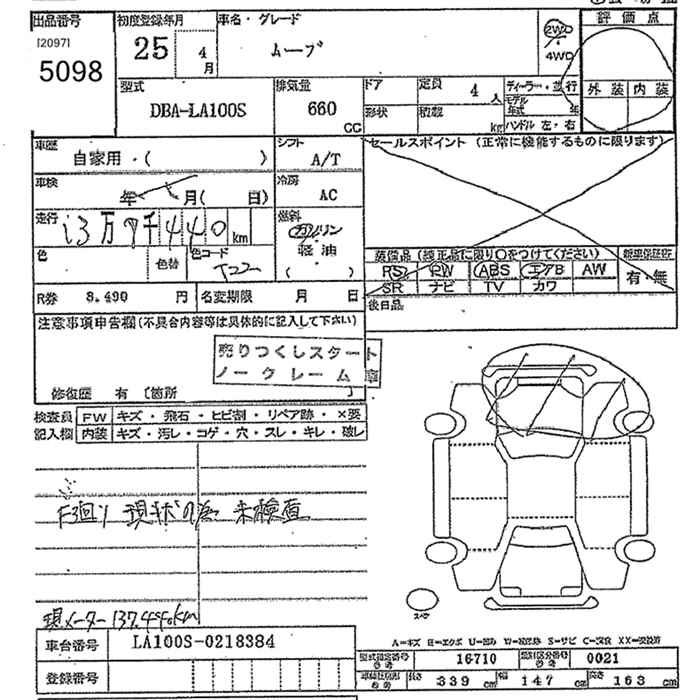 出品番号
[2097]
5098
初度登録年月
25
4
月
車名・グレード
ムーブ
2WD
・
4WD
評価点
外装 内装
型式
DBA-LA100S
排気量
660
CC
ドア
形状
定員 4 人
積載 kg
ディーラー・並行
モデル
年式 年
ハンドル 左・右
車歴
自家用・( )
シフト
A/T
セールスポイント (正常に機能するものに限ります)
車検
年 月( 日)
冷房
AC
走行
13万7千440 km
燃料
ガソリン
軽油
( )
色
色替
色コード
T22
装備品 (純正品に限り○をつけてください)
新車保証書
PS PW ABS エアB AW
SR ナビ TV カワ
有・無
R券 8,490 円
名変期限 月 日
後日品
注意事項申告欄(不具合内容等は具体的に記入して下さい)
売りつくしスタート
ノークレーム
修復歴 有 〔箇所 〕
検査員
記入欄
FW キズ・飛石・ヒビ割・リペア跡・×要
内装 キズ・汚レ・コゲ・穴・スレ・キレ・破レ
F3回り 現状の為 未検査
現メーター 137,440km
スペア
車台番号
LA100S-0218384
登録番号
型式指定番号
参考
16710
類別区分番号
参考
0021
参考
長さ 339 cm
幅 147 cm
高さ 163 cm